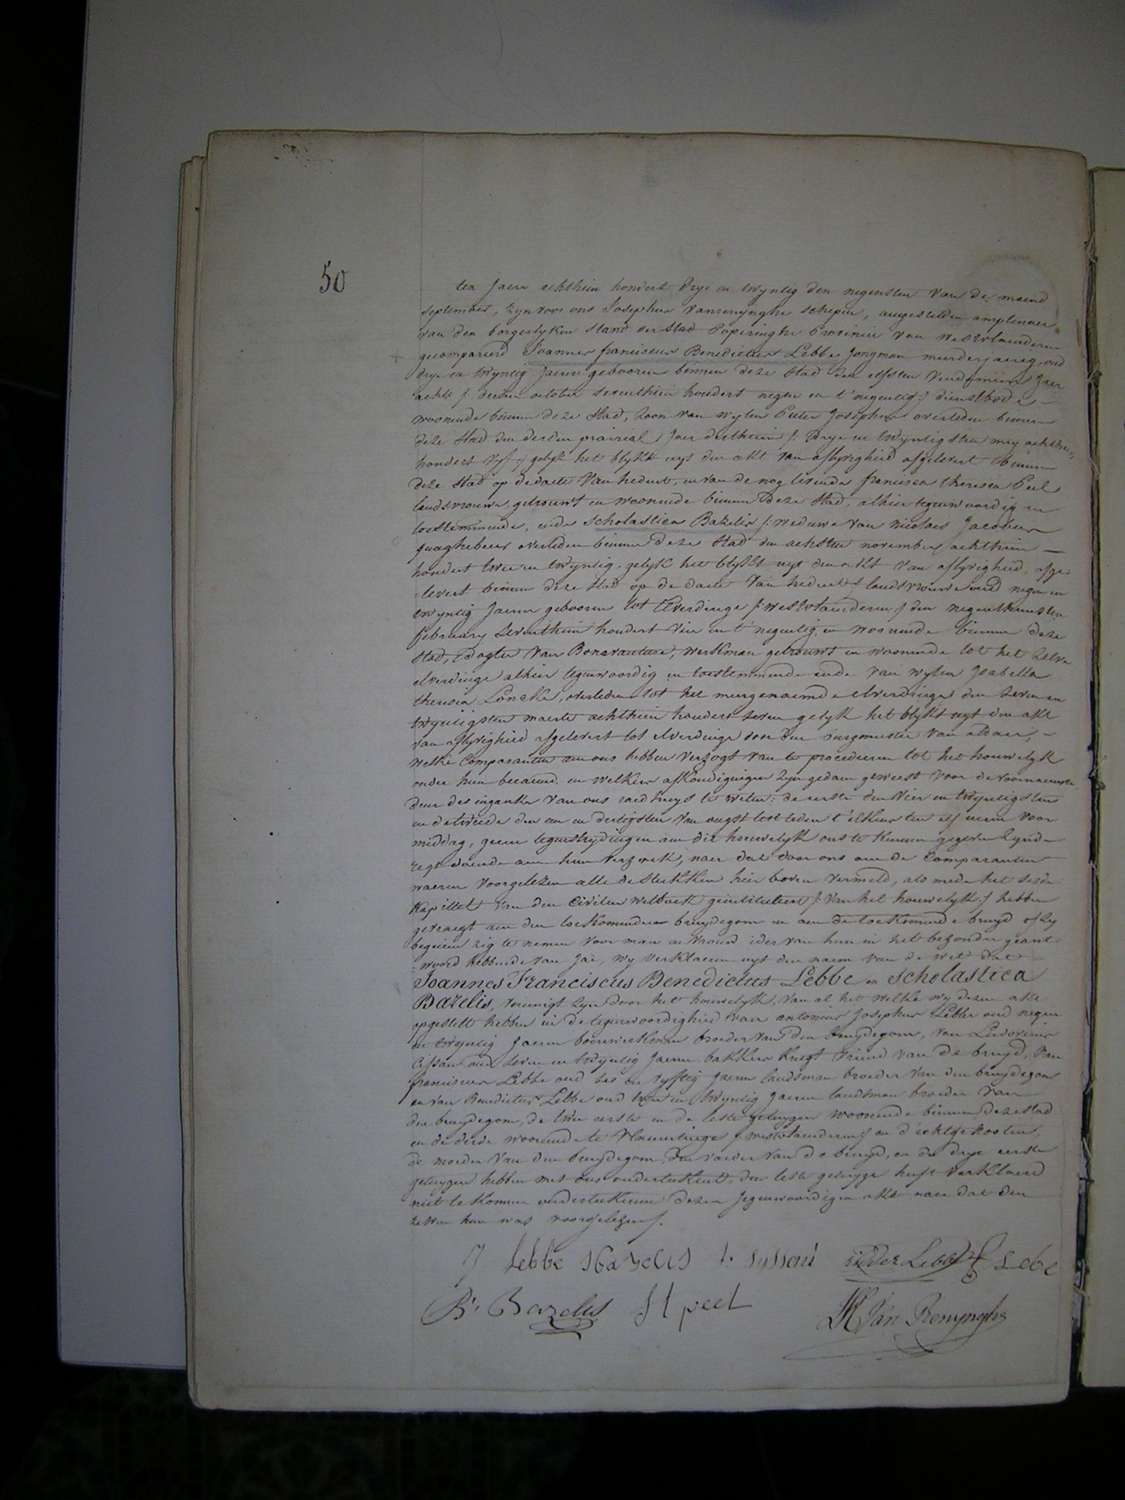 50
ten Jaere achthien hondert drye en twyntig den negensten van de maend
september, zyn voor ons Josephus vanrenynghe schepen, aengestelden amptenaer
van den borgerlyken stand der stad Poperinghe Provincie van Westvlaenderen
gecompareerd Joannes franciscus Benedictus Lebbe Jongman meerderjaerig, oud
drye en twyntig Jaeren gebooren binnen deze stad den elfsten vendemiaire Jaer
achte / derden october seventhien hondert negen en t'negentig / dienstbode
woonende binnen deze stad, zoon van wylen Pieter Josephus overleden binnen
deze stad den derden prairial Jaer derthien / drye en twyntigsten mey achthien
hondert vyf / gelyk het blykt uyt den akt van aflyvigheid afgelevert binnen
deze stad op de daete van hedent, en van de nog levende francisca theresia Peel
landsvrouwe, getrouwt en woonende binnen deze stad, alhier tegenwoordig en
toestemmende, ende scholastica Bazelis / weduwe van Nicolaes Jacobus
quaghebeur overleden binnen deze stad den achsten november achthien
hondert twee en twyntig, gelyk het blykt uyt den akt van aflyvigheid, afge-
levert binnen deze stad op de daete van hedent / landsvrouwe oud negen en
twyntig Jaeren gebooren tot Elverdinge / westvlaenderen / den negenthiensten
february seventhien hondert vier en t'negentig, en woonende binnen deze
stad, dogter van Bonavanture, werkman getrouwt en woonende tot het zelve
elverdinge alhier tegenwoordig en toestemmende ende van wylen Isabella
theresia Loncke, overleden tot het meergenaemde elverdinge den seven en
twyntigsten maerte achthien hondert seven gelyk het blykt uyt den akt
van aflyvigheid afgelevert tot elverdinge door den burgmeester van aldaer,
welke Comparanten aen ons hebben verzogt van te procedeeren tot het houwelyk
onder hun beraemd en welkers afkondiginge zyn gedaen geweest voor de voornaemste
deur des ingank van ons raed huys te weten: de eerste den vier en twyntigsten
en de tweede den een en dertigsten van ougst lest leden t'elkens ten elf ueren voor
middag, geene tegenstrydingen aen die houwelyk ons te kennen gegeven zynde
regt doende aen hun verzoek, naer dat door ons aen de Comparanten
waeren voorgelezen alle de stukken hier boven vermeld, als mede het seste
Kapittel van den Civilen wetboek geintituleert / van het houwelyk / hebben
gevraegt aen den toekomenden bruydegom en aen de toekomende bruyd of zy
begeiren zig te nemen voor man en vrouw ider van hun in het bezonder geant-
woord hebbende van Jae, wy verklaeren uyt den naem van de wet dat
Joannes Franciscus Benedictus Lebbe en Scholastica
Bazelis, vereenigt zyn door het houwelyk, van al het welke wy dezen akt
opgestelt hebben in de tegenwoordigheid van antonius Josephus Lebbe oud negen
en twyntig Jaeren boerewerkman broeder van den bruydegom, van Ludovicus
Cissau oud seven en twyntig Jaeren bakkers knegt vriend van de bruyd, van
franciscus Lebbe oud ses en vyftig Jaeren landsman broeder van den bruydegom
en van Benedictus Lebbe oud een en twyntig Jaeren landsman broeder van
den bruydegom, de twee eerste en de leste getuygen woonende binnen deze stad
en de derde woonende te vlamertinge / westvlaenderen / en d'echtgenooten,
de moeder van den bruydegom, den vaeder van de bruyd, en de drye eerste
getuygen hebben met ons onderteekent, den leste getuyge heeft verklaerd
niet te konnen onderteekenen dezen Jegenwoordigen akt naer dat den
zelven hun was voorgelezen /.
J Lebbe SBazelis L. sissau Lebbe
B. Bazelis ft peel
JVan Renynghe